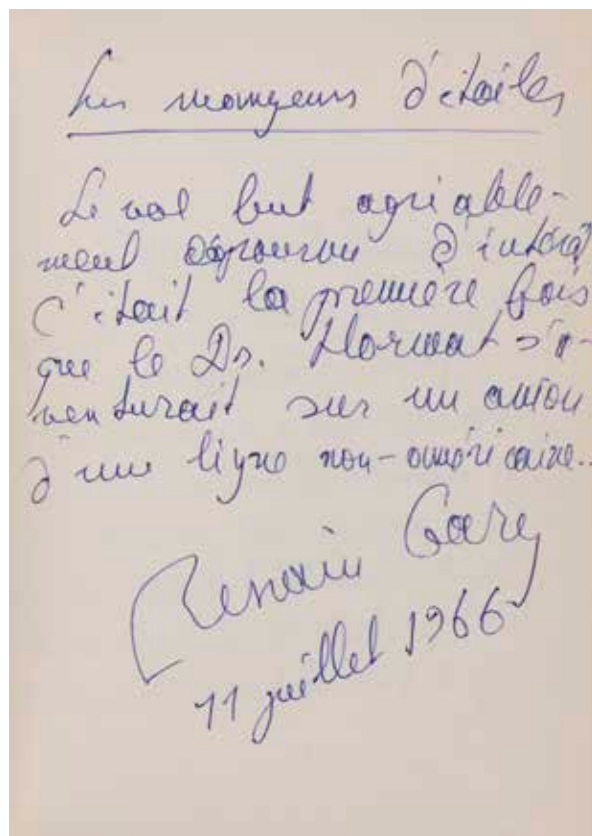 Les mangeurs d'étoiles
Le vol fut agréable-
ment dépourvu d'intérêt
C'était la première fois
que le Dr. Horwat s'a-
venturait sur un avion
d'une ligne non-américaine..
Romain Gary
11 juillet 1966